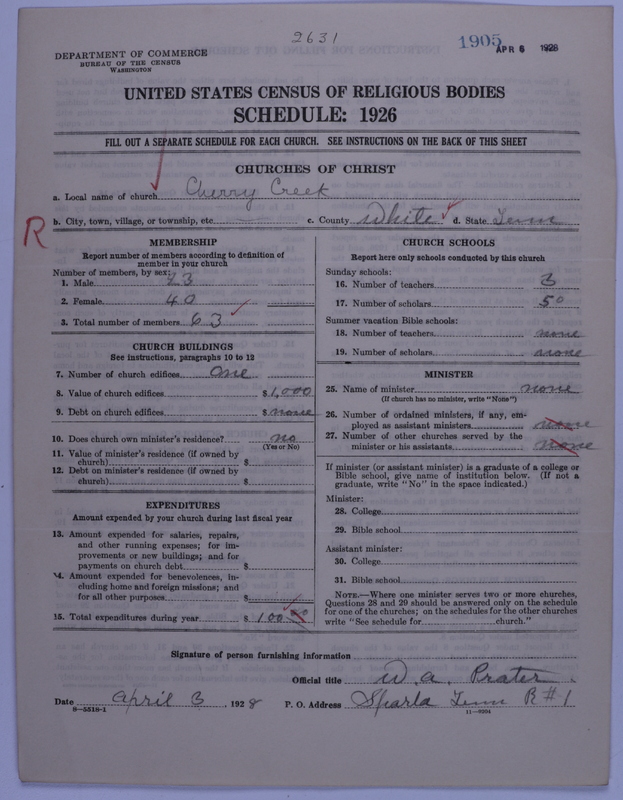 2631
1905
APR 6 1928
DEPARTMENT OF COMMERCE
BUREAU OF THE CENSUS
WASHINGTON
UNITED STATES CENSUS OF RELIGIOUS BODIES
SCHEDULE: 1926
FILL OUT A SEPARATE SCHEDULE FOR EACH CHURCH. SEE INSTRUCTIONS ON THE BACK OF THIS SHEET
CHURCHES OF CHRIST
a. Local name of church Cherry Creek
R
b. City, town, village, or township, etc. c. County White d. State Tenn
MEMBERSHIP
Report number of members according to definition of
member in your church
Number of members, by sex:
1. Male 23
2. Female 40
3. Total number of members 63
CHURCH BUILDINGS
See instructions, paragraphs 10 to 12
7. Number of church edifices One
8. Value of church edifices $1,000
9. Debt on church edifices $ none
10. Does church own minister's residence? no
(Yes or No)
11. Value of minister's residence (if owned by
church) $
12. Debt on minister's residence (if owned by
church) $
EXPENDITURES
Amount expended by your church during last fiscal year
13. Amount expended for salaries, repairs,
and other running expenses; for im-
provements or new buildings; and for
payments on church debt $
14. Amount expended for benevolences, in-
cluding home and foreign missions; and
for all other purposes $
15. Total expenditures during year $ 100 00
CHURCH SCHOOLS
Report here only schools conducted by this church
Sunday schools:
16. Number of teachers 3
17. Number of scholars 50
Summer vacation Bible schools:
18. Number of teachers none
19. Number of scholars none
MINISTER
25. Name of minister none
(If church has no minister, write "None")
26. Number of ordained ministers, if any, em-
ployed as assistant ministers none
27. Number of other churches served by the
minister or his assistants none
If minister (or assistant minister) is a graduate of a college or
Bible school, give name of institution below. (If not a
graduate, write "No" in the space indicated.)
Minister:
28. College
29. Bible school
Assistant minister:
30. College
31. Bible school
NOTE.—Where one minister serves two or more churches,
Questions 28 and 29 should be answered only on the schedule
for one of the churches; on the schedules for the other churches
write "See schedule for church."
Signature of person furnishing information
Official title W. A. Prater
Date April 3, 1928 P. O. Address Sparta Tenn R #1
8-5518-1 11-9204